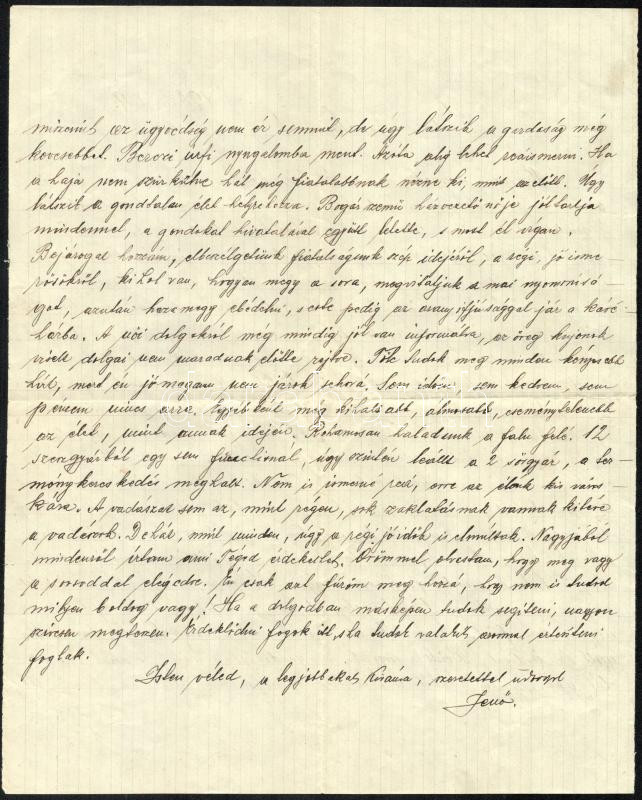 miszerint az ügyvédség nem ér semmit, de úgy látszik a gazdaság még
kevesebbet. Berczi urfi nyugalomba ment. Azóta alig lehet reáismerni. Ha
a haja nem szürkülne hát még fiatalabbnak nézne ki, mint azelőtt. Úgy
látszik a gondtalan élet helyre hozza. Bogár szemű házvezető nője jól tartja
mindennel, a gondokat hivatalával együtt letette, s most él vígan.
Bejárogat hozzám, elbeszélgetünk fiatalságunk szép idejéről, a régi, jó isme
rősökről, ki hol van, hogyan megy a sora, megvitatjuk a mai nyomorúsá
got, azután haza megy ebédelni, este pedig az arany ifjúsággal jár a káve
házba. A női dolgokról még mindig jól van informálva, az öreg
viselt dolgai nem maradnak előtte rejtve. Tőle tudok meg minden
hírt, mert én jó magam nem járok sehová. Sem időm, sem kedvem, sem
pénzem nincs arra. Egyébként még kihaltabb, álmosabb, eseménytelenebb
az élet, mint annak idején. Rohamosan haladunk a falu felé. 12
szeszgyárból egy sem functional, úgy szintén leállt a 2 sörgyár, a ter
ménykereskedés meghalt. Nem is ismerne reá, erre az élénk kis város
kára. A vadászat sem az, mint régen, sok zaklatásnak vannak kitéve
a vadászok. De hát, mint minden, úgy a régi jó idők is elmúltak. Nagyjából
mindenről írtam ami Téged érdekelhet. Örömmel olvastam, hogy meg vagy
a sorsoddal elégedve. Én csak azt fűzöm meg hozzá, hogy nem is tudod
milyen boldog vagy! Ha a dolgodban másképen tudok segíteni, nagyon
szívesen megteszem. Érdeklődni fogok itt, s ha tudok valakit, azonnal értesíteni
foglak.
Isten véled, a legjobbakat kívánva, szeretettel üdvözöl
Jenő.